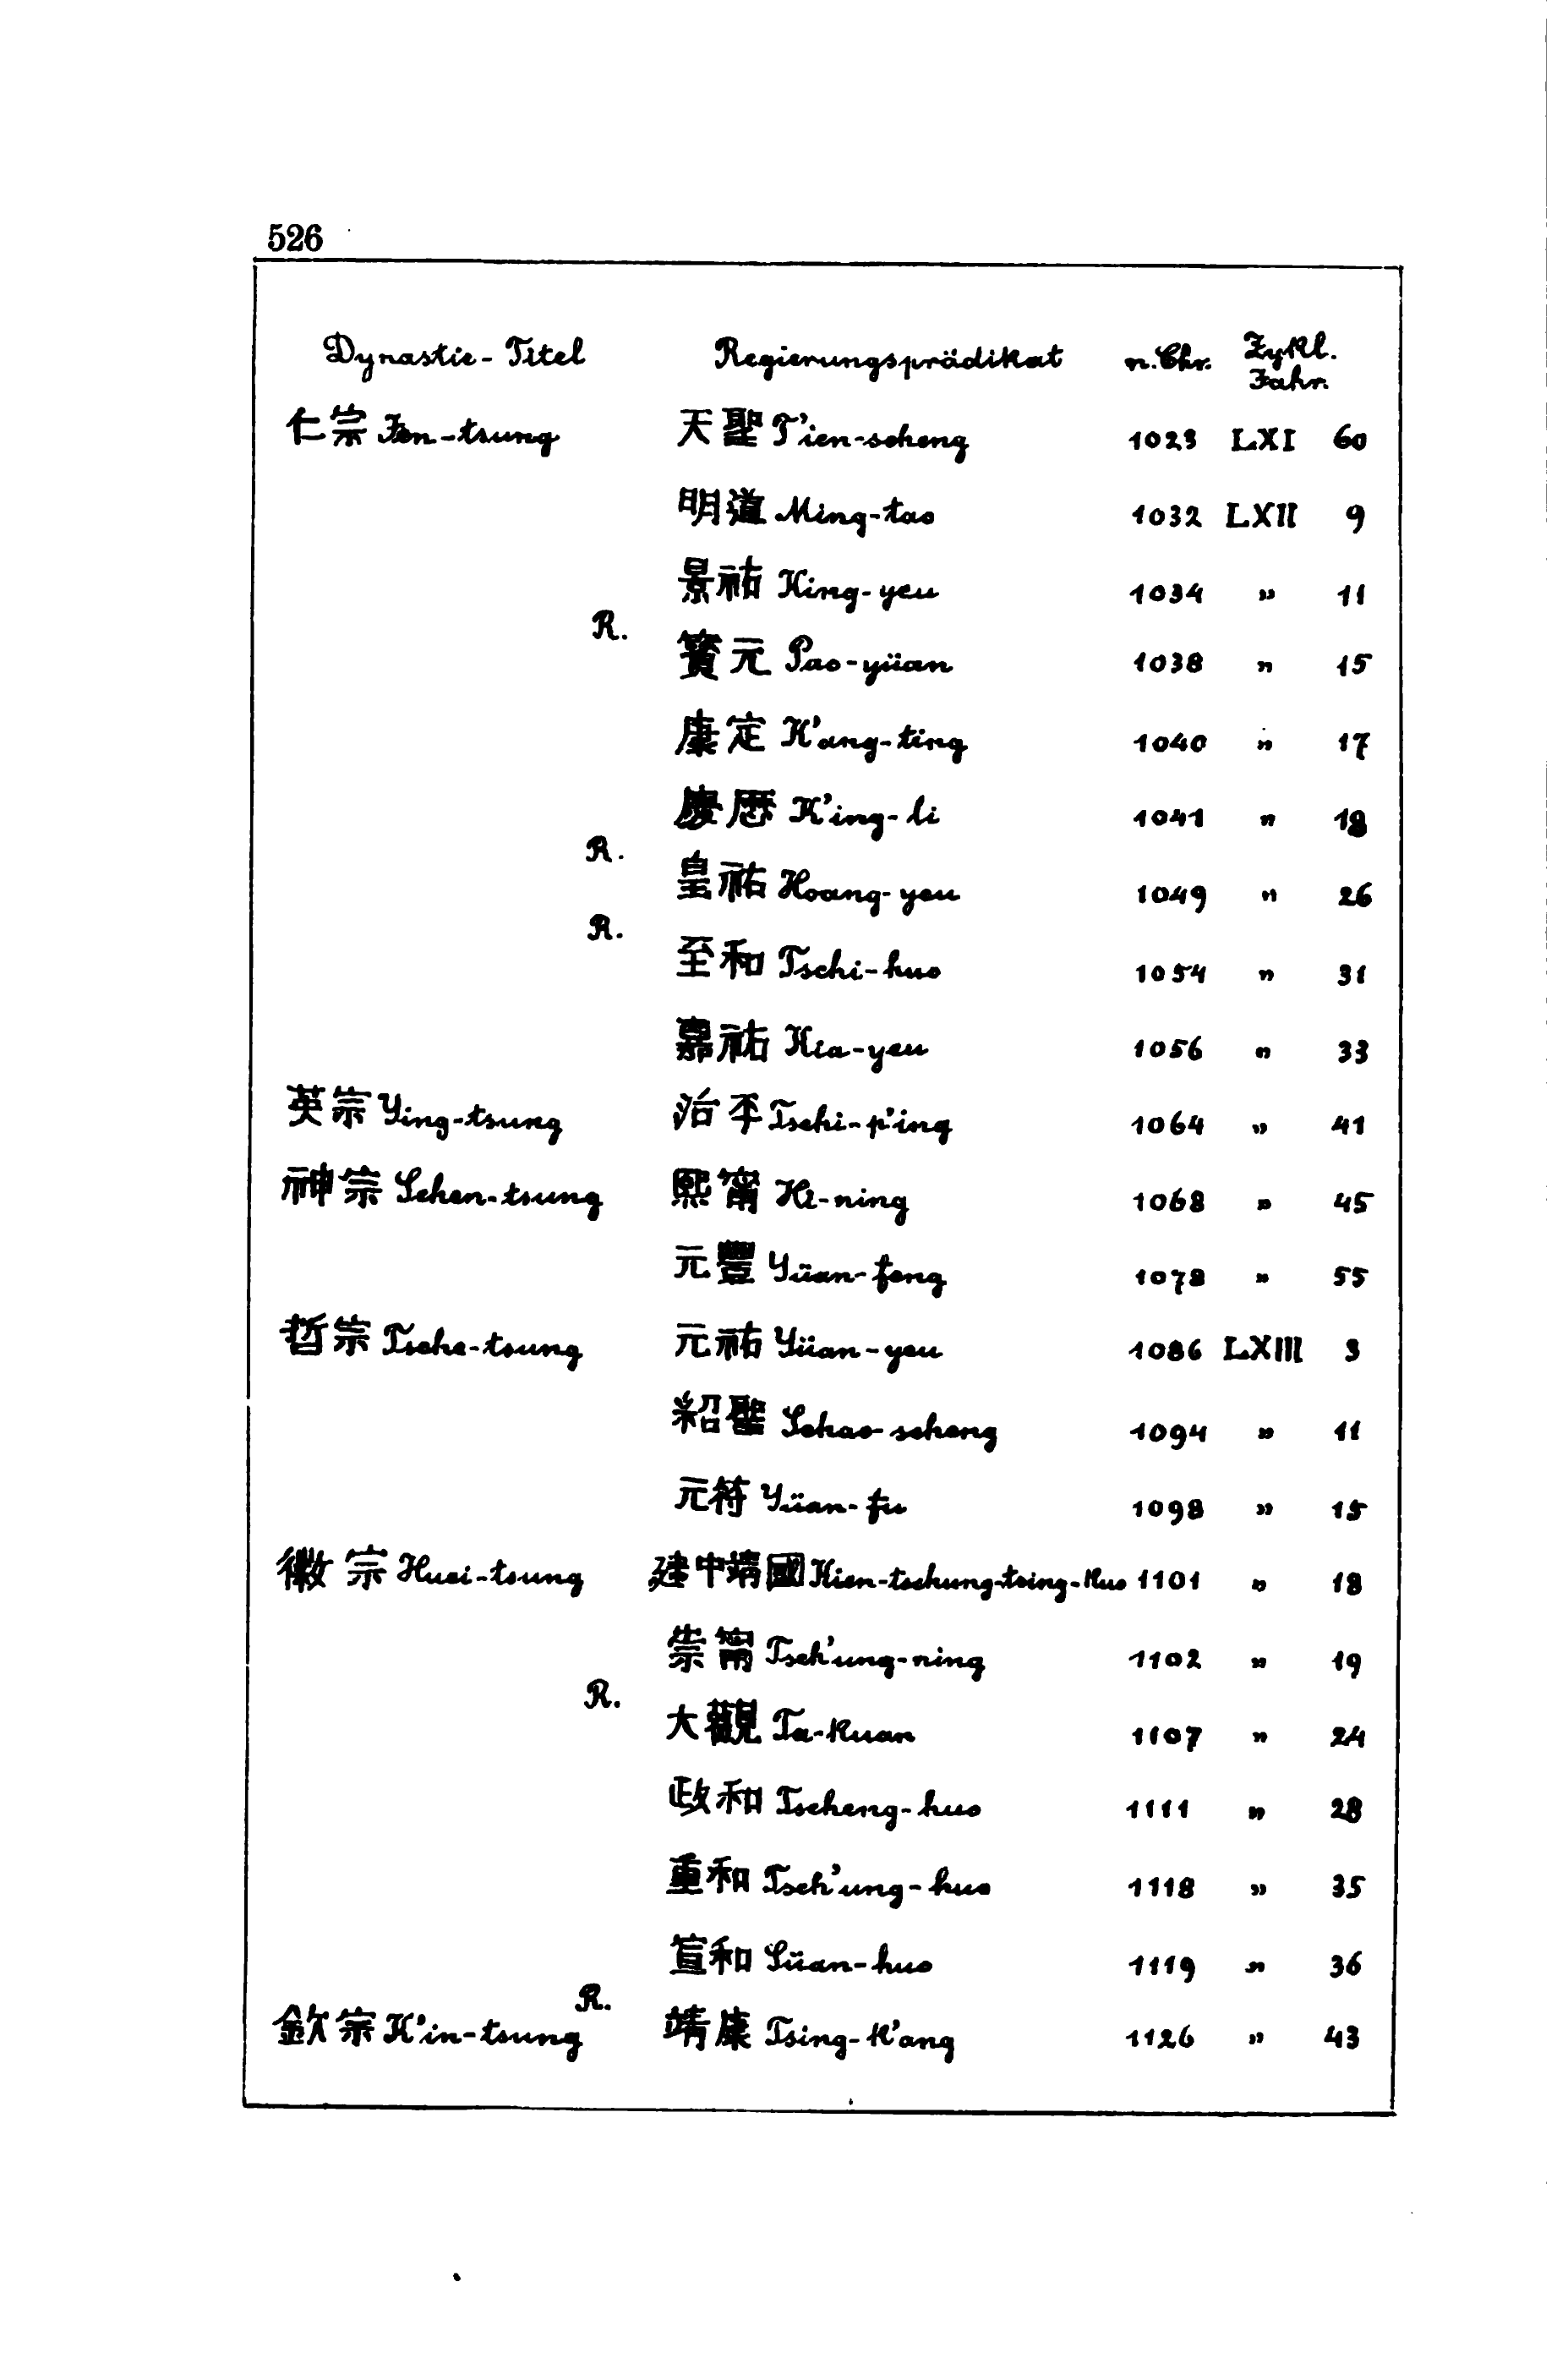 526
Dynastie-Titel Regierungsprädikat n. Chr. Zykl. Jahr.
仁宗 Jen-tsung 天聖 T'ien-scheng 1023 LXI 60
明道 Ming-tao 1032 LXII 9
景祐 King-yeu 1034 " 11
R.
寳元 Pao-yüan 1038 " 15
康定 K'ang-ting 1040 " 17
慶歷 K'ing-li 1041 " 18
R.
皇祐 Hoang-yeu 1049 " 26
R.
至和 Tschi-huo 1054 " 31
嘉祐 Kia-yeu 1056 " 33
英宗 Ying-tsung 治平 Tschi-p'ing 1064 " 41
神宗 Schen-tsung 熙甯 Hi-ning 1068 " 45
元豐 Yüan-feng 1078 " 55
哲宗 Tsche-tsung 元祐 Yüan-yeu 1086 LXIII 3
紹聖 Schao-scheng 1094 " 11
元符 Yüan-fu 1098 " 15
徽宗 Huei-tsung 建中靖國 Kien-tschung-tsing-kuo 1101 " 18
崇甯 Tsch'ung-ning 1102 " 19
R.
大觀 Ta-kuan 1107 " 24
政和 Tscheng-huo 1111 " 28
重和 Tsch'ung-huo 1118 " 35
宣和 Süan-huo 1119 " 36
R.
欽宗 K'in-tsung 靖康 Tsing-k'ang 1126 " 43